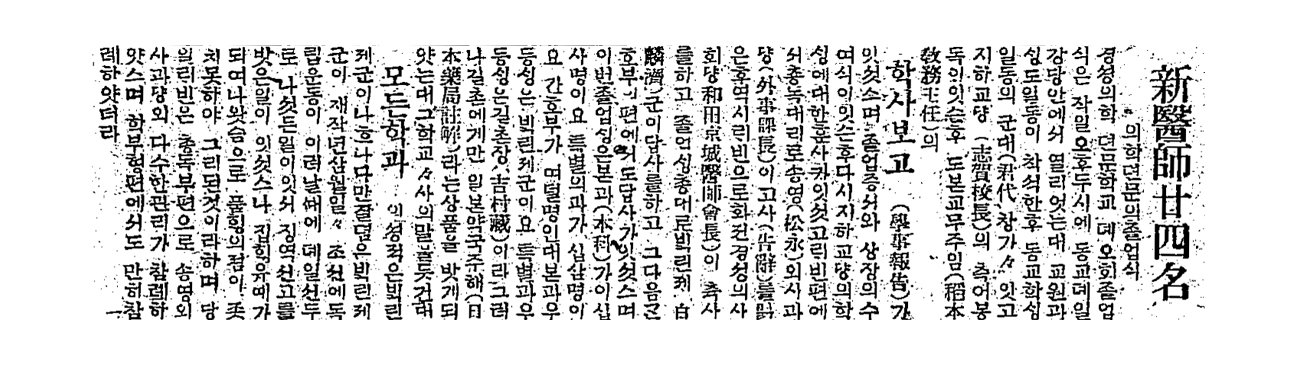 新醫師廿四名
의학뎐문의졸업식
경성의학 뎐문학교 뎨오회졸업
식은 작일오후두시에 동교뎨일
강당안에서 열리엇는대 교원과
싱도일동이 착석한후 동교학싱
일동의 군대(君代)창가々 잇고
지하교댱 (志賀校長)의 측어봉
독이잇슨후 도본교무주임(稻本
敎務主任)의
학사보고 (學事報告)가
잇섯스며 졸업증서와 상장의수
여식이잇슨후다시지하교댱의학
싱에대한훈사가잇섯고릭빈편에
서총독대리로송영(松永)외사과
댱(外事課長)이고사(告辭)를낡
은후역시릭빈으로화뎐경성의사
회댱和田京城醫師會長)이 축사
를하고 졸업싱총대로빅린제(白
麟濟)군이답사를하고 그다음간
호부편에서도답사가잇섯스며
이번졸업싱은본과(本科)가이십
사명이요 특별의과가 십삼명이
요 간호부가 여덜명인대본과우
등싱은 빅린제군이요 특별과우
등싱은길촌장(吉村藏)이라그러
나길촌에게만 일본약국주해(日
本藥局註解)라는상품을 밧게되
얏는대그학교々사의말을듯건대
모든학과 의성적은빅린
제군이나흐나다만졸뎡은빅린제
군이 재작년삼월일々 조선에독
립운동이 이러날때에 뎨일선두
로 나섯든일이잇서 징역선고를
밧은일이 잇섯스나 집힝유예가
되여나왓슴으로 품힝의점이 좃
치못하야 그리된것이라하며 당
일릭빈은 총독부편으로 송영외
사과댱외 다수한관리가 참례하
얏스며 학부형편에서도 만히참
례하얏더라